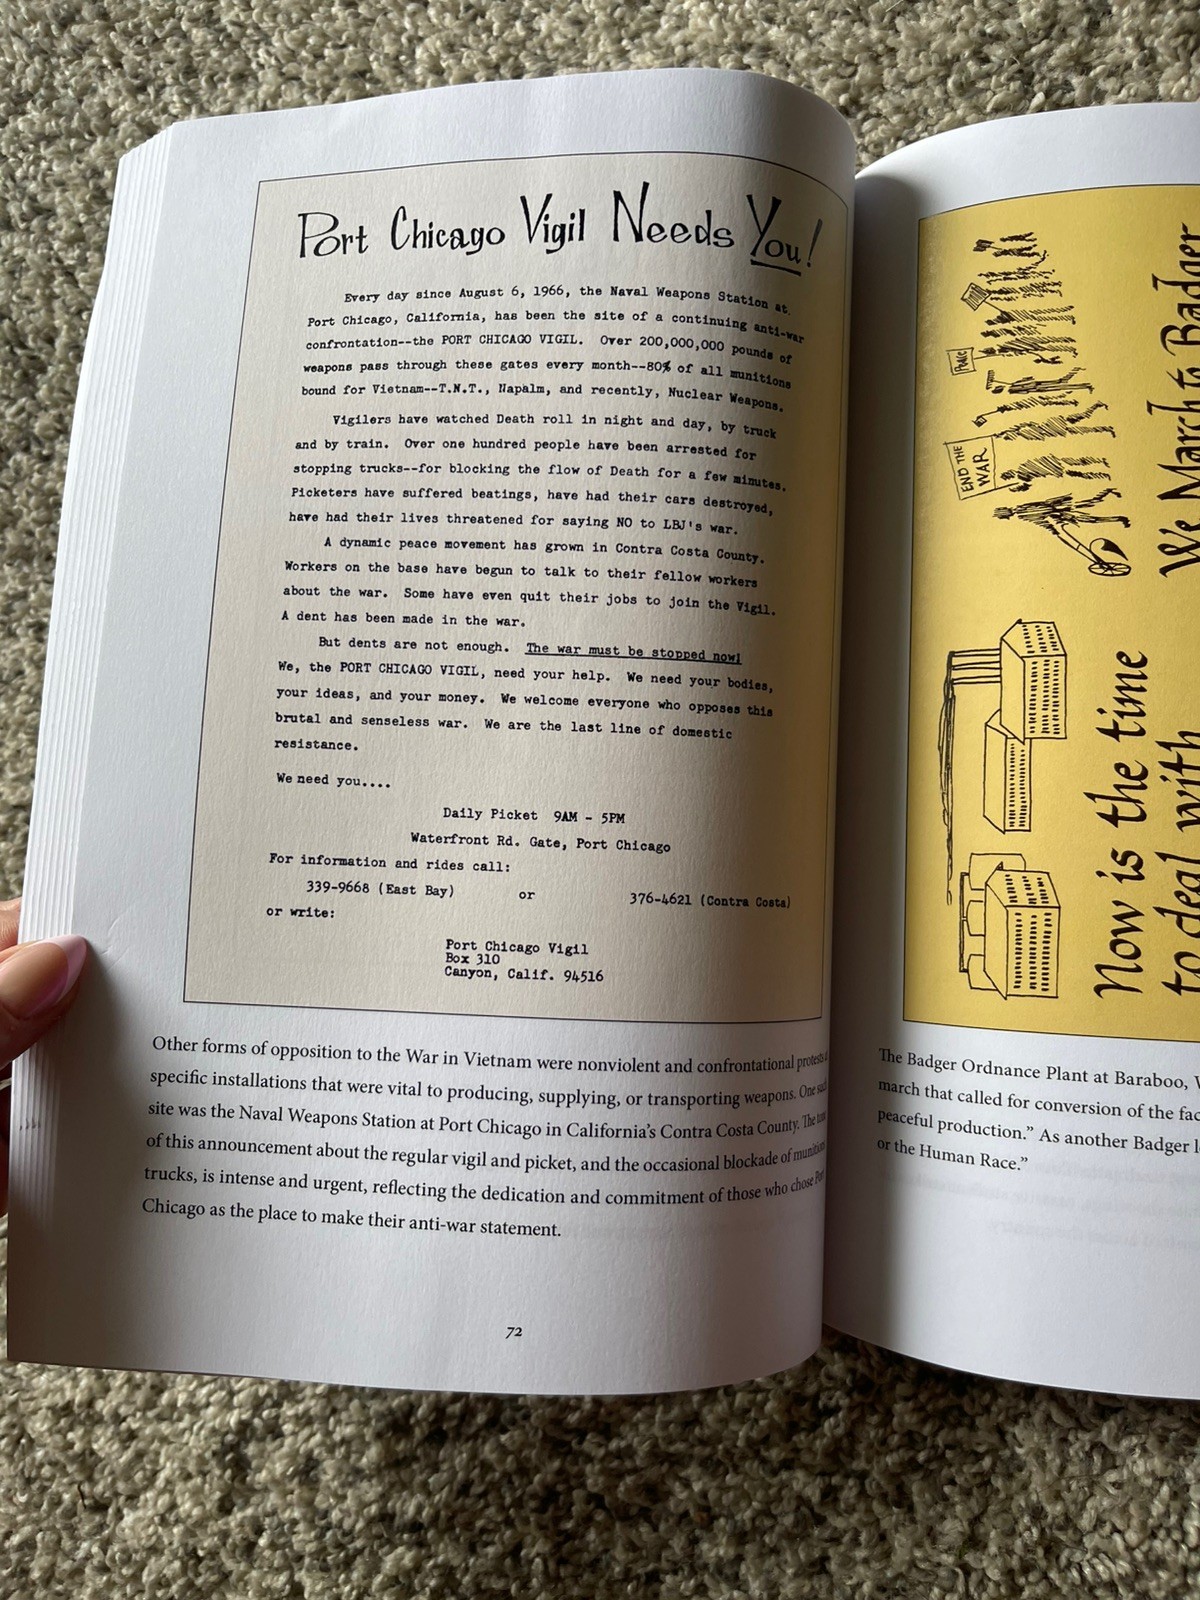 Port Chicago Vigil Needs You!
Every day since August 6, 1966, the Naval Weapons Station at
Port Chicago, California, has been the site of a continuing anti-war
confrontation--the PORT CHICAGO VIGIL. Over 200,000,000 pounds of
weapons pass through these gates every month--80% of all munitions
bound for Vietnam--T.N.T., Napalm, and recently, Nuclear Weapons.
Vigilers have watched Death roll in night and day, by truck
and by train. Over one hundred people have been arrested for
stopping trucks--for blocking the flow of Death for a few minutes.
Picketers have suffered beatings, have had their cars destroyed,
have had their lives threatened for saying NO to LBJ's war.
A dynamic peace movement has grown in Contra Costa County.
Workers on the base have begun to talk to their fellow workers
about the war. Some have even quit their jobs to join the Vigil.
A dent has been made in the war.
But dents are not enough. The war must be stopped now!
We, the PORT CHICAGO VIGIL, need your help. We need your bodies,
your ideas, and your money. We welcome everyone who opposes this
brutal and senseless war. We are the last line of domestic
resistance.
We need you....
Daily Picket 9AM - 5PM
Waterfront Rd. Gate, Port Chicago
For information and rides call:
339-9668 (East Bay) or 376-4621 (Contra Costa)
or write:
Port Chicago Vigil
Box 310
Canyon, Calif. 94516
Other forms of opposition to the War in Vietnam were nonviolent and confrontational protests
specific installations that were vital to producing, supplying, or transporting weapons. One
site was the Naval Weapons Station at Port Chicago in California's Contra Costa County. The
of this announcement about the regular vigil and picket, and the occasional blockade of munition
trucks, is intense and urgent, reflecting the dedication and commitment of those who chose Port
Chicago as the place to make their anti-war statement.
72
PEACE
END THE
WAR
We March to Badger
Now is the time
to deal with
The Badger Ordnance Plant at Baraboo,
march that called for conversion of the
peaceful production." As another Badger
or the Human Race."